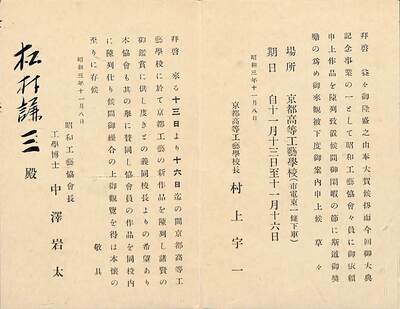 拜啓 益々御隆盛之由奉大賀候陳而今回御大典
記念事業の一として昭和工藝協會々員に御依頼
申上作品を陳列致置候間御閑暇の節に斯道御奬
勵の爲め御來觀被下度御案内申上候 草々
場所 京都高等工藝學校(市電東一條下車)
期日 自十一月十三日至十一月十六日
昭和三年十一月八日
京都高等工藝學校長 村上宇一
拜啓 來る十三日より十六日迄の間京都高等工
藝學校に於て京都工藝の新作品を陳列し諸賢の
御鑑賞に供し度きとの義同校長よりの希望あり
本協會も其の擧に贊同し協會員の作品を同校内
に陳列仕り候間御繰合の上御觀覽を得ば本懷の
至りに存候 敬具
昭和三年十一月八日
昭和工藝協會長
工學博士 中澤岩太
松村謙三殿